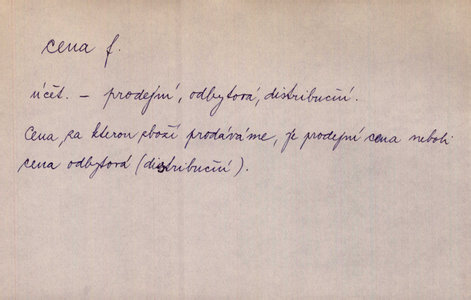 cena f.
účet. – prodejní, odbytová, distribuční.
Cena, za kterou zboží prodáváme, je prodejní cena neboli
cena odbytová (distribuční).